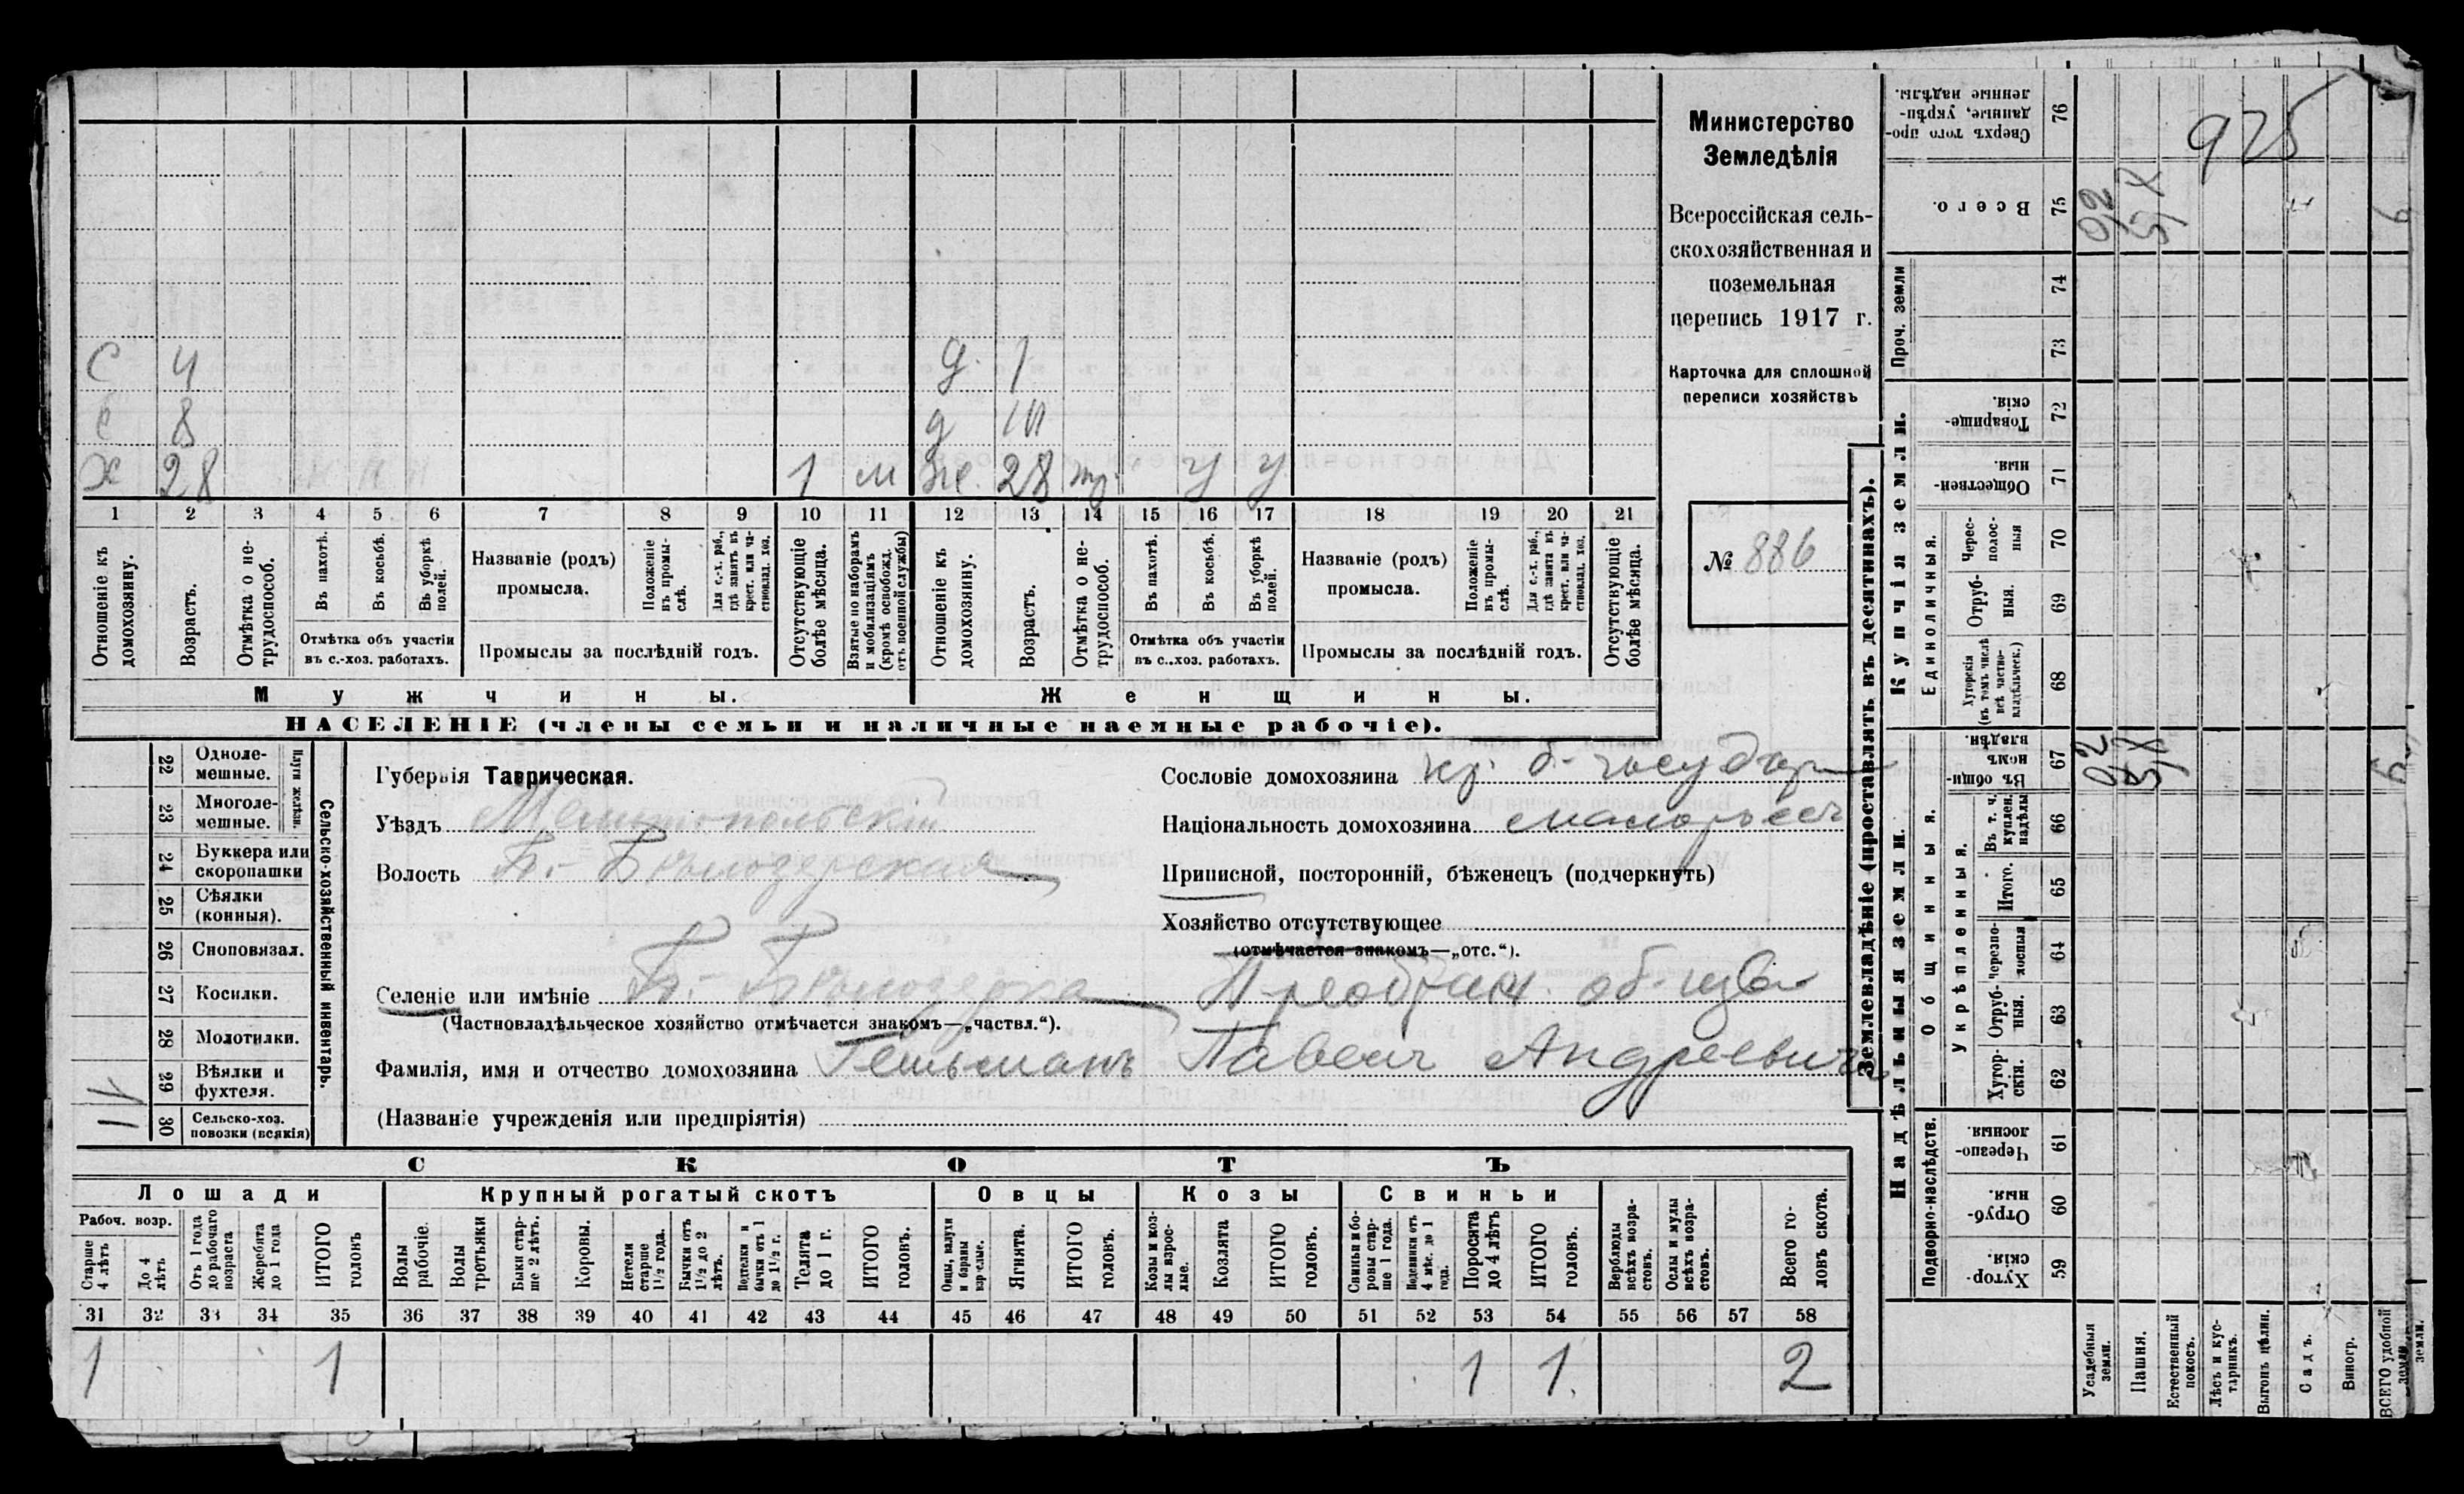 925
Министерство
Земледѣлія
Всероссійская сель-
скохозяйственная и
поземельная
перепись 1917 г.
Карточка для сплошной
переписи хозяйствъ
№ 886
С 4 д. 1
С 8 д
Х 28 1 м Же. 28 у у
1 2 3 4 5 6 7 8 9 10 11 12 13 14 15 16 17 18 19 20 21
Отношеніе къ домохозяину.
Возрастъ.
Отмѣтка о не-трудоспособ.
Въ пахотѣ.
Въ косьбѣ.
Въ уборкѣ полей.
Отмѣтка объ участіи
въ с.-хоз. работахъ.
Названіе (родъ)
промысла.
Положеніе въ промы-слѣ.
Для с.-х. раб., гдѣ занятъ въ крест. или ча-стновлад. хоз.
Промыслы за послѣдній годъ.
Отсутствующіе болѣе мѣсяца.
Взятые по наборамъ и мобилизаціямъ (кромѣ освобожд. отъ военной службы)
Отношеніе къ домохозяину.
Возрастъ.
Отмѣтка о не-трудоспособ.
Въ пахотѣ.
Въ косьбѣ.
Въ уборкѣ полей.
Отмѣтка объ участіи
въ с..хоз. работахъ.
Названіе (родъ)
промысла.
Положеніе въ промы-слѣ.
Для с.-х. раб., гдѣ занята въ крест. или ча-стновлад. хоз.
Промыслы за послѣдній годъ.
Отсутствующіе болѣе мѣсяца.
Мужчины.
Женщины.
НАСЕЛЕНІЕ (члены семьи и наличные наемные рабочіе).
22 Одноле-мешные.
23 Многоле-мешные.
Плуги желѣзн.
24 Буккера или скоропашки
25 Сѣялки (конныя).
26 Сноповязал.
27 Косилки.
28 Молотилки.
29 Вѣялки и фухтеля.
30 Сельско-хоз. повозки (всякія)
Сельско-хозяйственный инвентарь.
Губернія Таврическая.
Уѣздъ Мелитопольскій
Волость Б.- Бѣлозерская
Селеніе или имѣніе Б.- Бѣлозерка Преображ. об-щво
(Частновладѣльческое хозяйство отмѣчается знакомъ—„частвл.“).
Фамилія, имя и отчество домохозяина Гетьманъ Павелъ Андреевичъ
(Названіе учрежденія или предпріятія)
Сословіе домохозяина кр. б.- государ
Національность домохозяина малороссъ
Приписной, посторонній, бѣженецъ (подчеркнуть)
Хозяйство отсутствующее
(отмѣчается знакомъ—„отс.“).
СКОТЪ
Лошади
Крупный рогатый скотъ
Овцы
Козы
Свиньи
Рабоч. возр.
Старше 4 лѣтъ
До 4 лѣтъ
Отъ 1 года до рабочаго возраста
Жеребята до 1 года
ИТОГО головъ
Волы рабочіе.
Волы третьяки
Быки стар-ше 2 лѣтъ.
Коровы.
Нетели старше 1½ года.
Бычки отъ 1½ до 2 лѣтъ.
Подтелки и бычки отъ 1 до 1½ г.
Телята до 1 г.
ИТОГО головъ.
Овцы, валухи и бараны взрослые.
Ягнята.
ИТОГО головъ.
Козы и коз-лы взрос-лые.
Козлята
ИТОГО головъ.
Свиньи и бо-ровы стар-ше 1 года.
Подсвинки отъ 4 мѣс. до 1 года.
Поросята до 4 лѣтъ
ИТОГО головъ.
Верблюды всѣхъ возра-стовъ.
Ослы и мулы всѣхъ возра-стовъ.
Всего го-ловъ скота.
31 32 33 34 35 36 37 38 39 40 41 42 43 44 45 46 47 48 49 50 51 52 53 54 55 56 57 58
1 1 1 1. 2
Землевладѣніе (проставлять въ десятинахъ).
Надѣльныя земли.
Купчія земли.
Проч. земли
Подворно-наслѣдств.
Общинныя.
Укрѣпленныя.
Единоличныя.
Сверхъ того про-данные, укрѣп-ленные надѣлы. 76
Всего. 75
74
73
Товарище-скія. 72
Обществен-ныя. 71
Черес-полос-ныя 70
Отруб-ныя. 69
Хуторскія (въ томъ числѣ всѣ частно-владѣльческ.) 68
Въ общин-номъ владѣн. 67
Въ т. ч. куплен. надѣлы 66
Итого. 65
Черезпо-лосныя 64
Отруб-ныя. 63
Хутор-скія. 62
Черезпо-лосныя. 61
Отруб-ныя. 60
Хутор-скія. 59
Усадебныя земли.
Пашня.
Естественный покосъ.
Лѣсъ и кус-тарникъ.
Выгонъ цѣлин.
Садъ.
Виногр.
ВСЕГО удобной земли